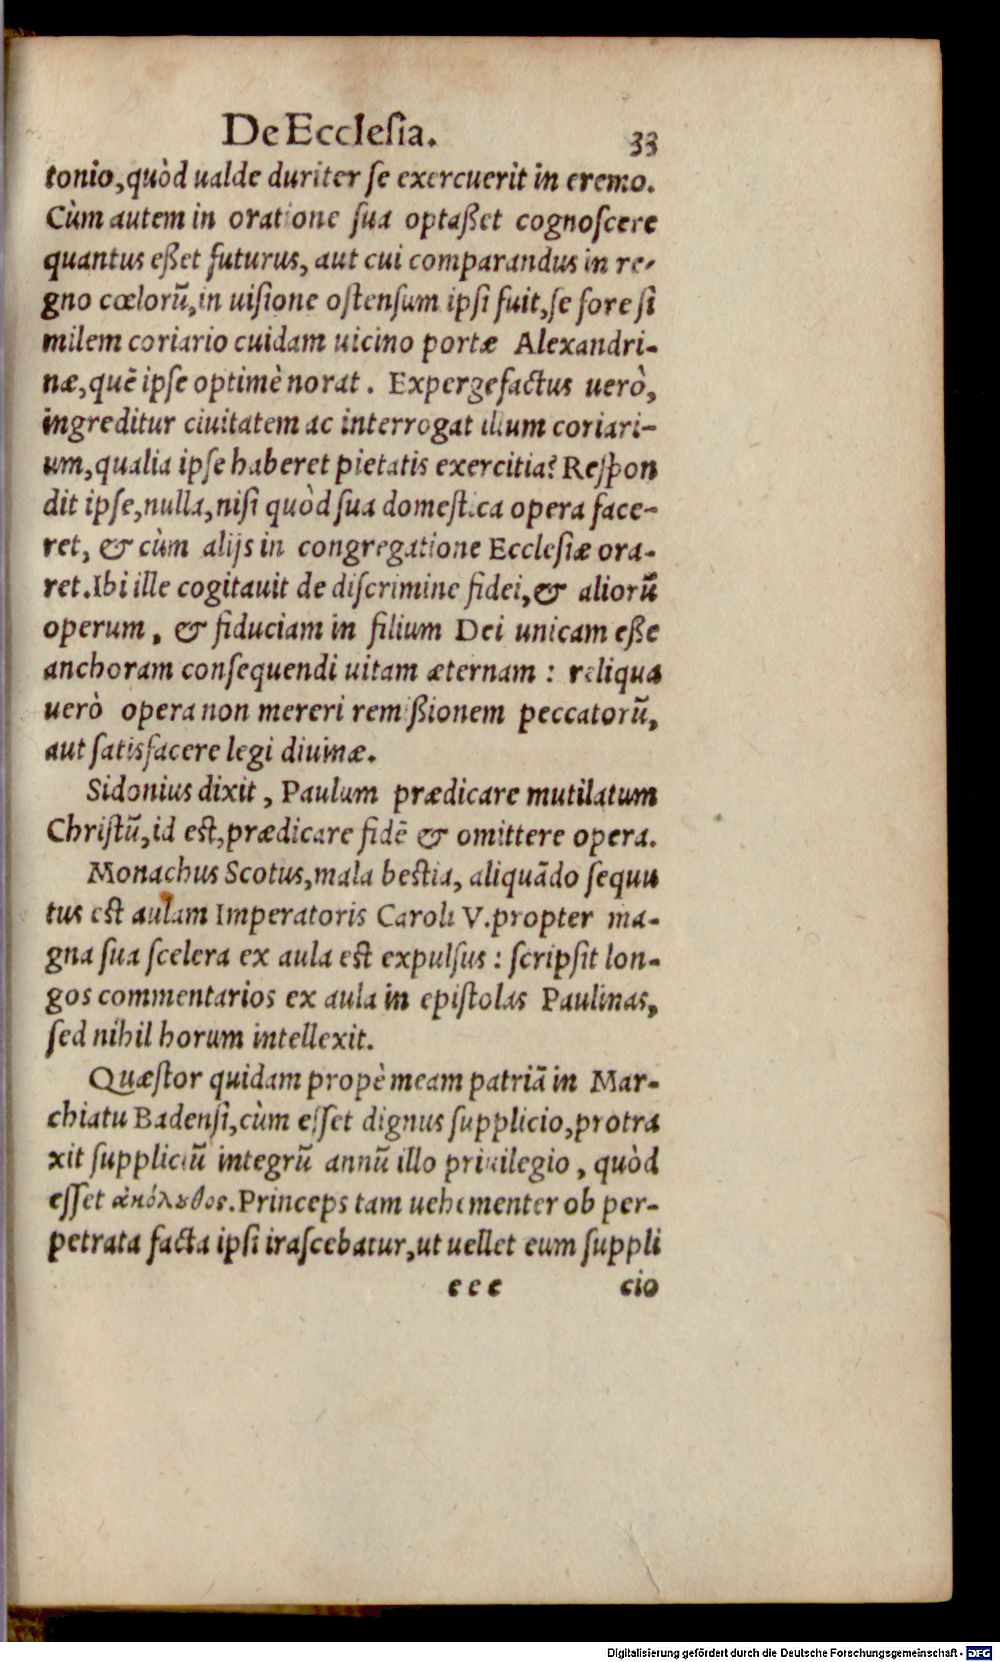 De Ecclesia.
33
tonio, quòd ualde duriter se exercuerit in eremo.
Cùm autem in oratione sua optaßet cognoscere
quantus eßet futurus, aut cui comparandus in re-
gno cœlorũ, in uisione ostensum ipsi fuit, se fore si
milem coriario cuidam uicino portæ Alexandri-
næ, quẽ ipse optimè norat. Expergefactus uerò,
ingreditur ciuitatem ac interrogat illum coriari-
um, qualia ipse haberet pietatis exercitia? Respon
dit ipse, nulla, nisi quòd sua domestica opera face-
ret, & cùm alijs in congregatione Ecclesiæ ora-
ret. Ibi ille cogitauit de discrimine fidei, & aliorũ
operum, & fiduciam in filium Dei unicam eße
anchoram consequendi uitam æternam: reliqua
uerò opera non mereri remißionem peccatorũ,
aut satisfacere legi diuinæ.
Sidonius dixit, Paulum prædicare mutilatum
Christũ, id est, prædicare fidẽ & omittere opera.
Monachus Scotus, mala bestia, aliquãdo sequu
tus est aulam Imperatoris Caroli V. propter ma-
gna sua scelera ex aula est expulsus: scripsit lon-
gos commentarios ex aula in epistolas Paulinas,
sed nihil horum intellexit.
Quæstor quidam propè meam patriã in Mar-
chiatu Badensi, cùm esset dignus supplicio, protra
xit suppliciũ integrũ annũ illo priuilegio, quòd
esset ἀκόλȣθος. Princeps tam uehementer ob per-
petrata facta ipsi irascebatur, ut uellet eum suppli
eee cio
Digitalisierung gefördert durch die Deutsche Forschungsgemeinschaft - DFG